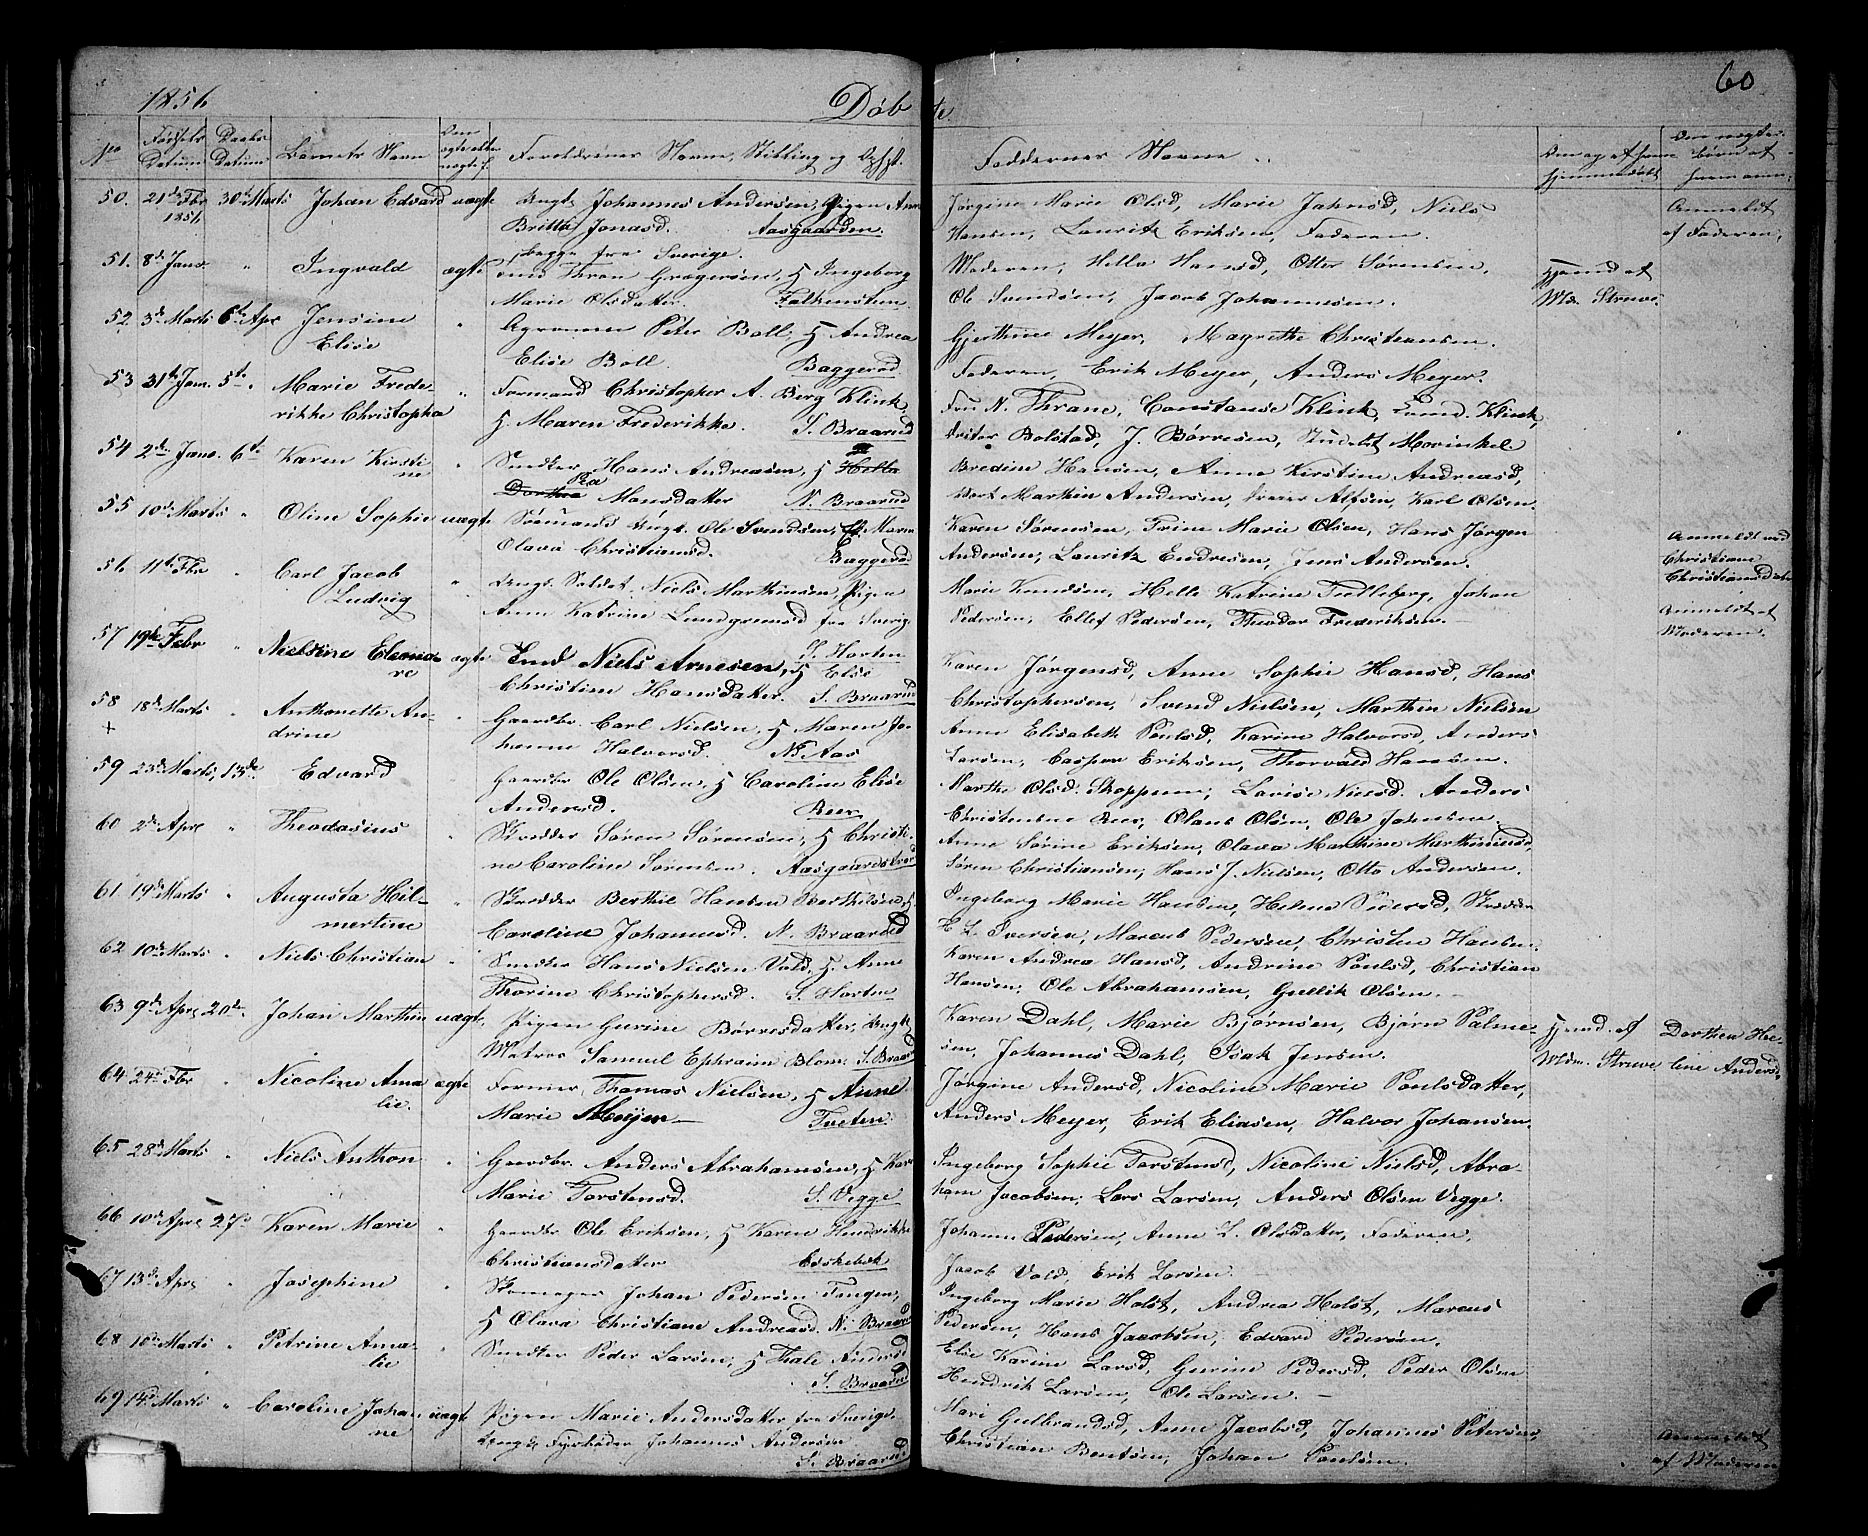 60
1856
Døbte
No
Fødsels Datum
Daabs Datum
Barnets Navn
Om ægte eller uægte f.
Forældrenes Navne, Stilling og
Faddernes Navne
Om og af hvem hjemmedøbt
50. 21de Fbr 1856. 30te Marts Johan Edvard uægte Ungk. Johannes Andersen, Pigen Anne Jørgine Marie Olsd, Marie Jahnsd, Niels Anmeldt
Britta Jonasd. Aasgaarden. Hansen, Lauritz Eriksen, Faderen. af Faderen,
begge fra Sverige.
51. 8de Janr. " Ingvald ægte Thron Gregersen, Ingeborg Moderen, Hella Hansd, Otter Sørensen, Hjemd af
Marie Olsdatter. Falkensten Ole Svendsen, Jacob Johannesen. Mdm. Struve.
52. 3de Marts 6te Apr Jensine " Agronom Peter Boll, Andrea Gjerthine Meyer, Magrethe Christiansen.
Elise Elise Boll. Baggerød Faderen, Erik Meyer, Anders Meyer.
53 31te Jan. 5te " Marie Frede- " Formand Christopher A. Berg Klink, Fru N. Thrane, Constanse Klink, Klink,
rikke Christopha Maren Frederikke. S. Braarud Bolstad, J. Børresen, Studebt Movinkel
54 2de Janr. 6te Karen Kirsti- " Snedker Hans Andreasen, Hella Bredine Hansen, Anne Kirstine Andreasd,
ne Dorthea Pea Mansdatter N. Braarud Marthin Andersen, Iver Alfsen, Karl Olsen.
55 10de Marts " Oline Sophie uægte Sømand Ungk. Ole Svendsen, Maren Karen Sørensen, Trine Marie Olsen, Hans Jørgen
Olava Christiansd. Baggerød Andersen, Lauritz Endresen, Jens Andersen. Anmeldt ved Christiane Christiansdatter
56 11te Fbr " Carl Jacob " Ungk. Soldat Niels Marthinsen, Pigen Marie Knudsen, Helle Katrine Fredleberg, Johan
Ludvig Anne Katrine Lundgreensd fra Sverige Pedersen, Ellef Pedersen, Theodor Frederiksen. Anmeldt af Moderen.
S. Horten
57 19de Febr " Nielsine Eleono- ægte Smd Niels Arnesen, Else Karen Jørgensd, Anne Sophie Hansd, Hans
re Christine Hansdatter. S. Braarud Christophersen, Svend Nielsen, Marthin Nielsen
58 18de Marts " Anthonette An- " Gaardbr. Carl Nielsen, Maren Jo- Anne Elisabeth Poulsd, Karine Halvorsd, Anders
+ drine hanne Halvorsd. N. Aas Larsen, Casper Eriksen, Thorvald Hansen.
59 23de Marts 13de. Edvard Gaardbr Ole Olsen, Caroline Elise Marthe Olsd. Skoppum, Lovise Nielsd. Anders
Andersd. Beer Christensen Beer, Olaus Olsen, Ole Johnsen.
60 2de Apr " Theodosius " Skredder Søren Sørensen, Christi- Anne Sørine Eriksen, Olava Marthine Marthiniusd,
ne Caroline Sørensen. Aasgaardstrand Søren Christiansen, Hans J. Nielsen, Otto Andersen.
61 19de Marts " Augusta Hil- " Skredder Berthil Hansen Berthilsen, Ingeborg Marie Hansen, Helene Pedersd, Skredder
mertine Caroline Johannesd. N. Braarud H. L. Iversen, Marcus Pedersen, Christen Hansen.
62 10de Marts " Niels Christian " Snedker Hans Nielsen Vold, Anne Karen Andrea Hansd, Andrine Poulsd, Christian
Thorine Christophersd. S. Horten Hansen, Ole Abrahamsen, Gullik Olsen.
63 9de Apr 20de. Johan Marthin uægte. Pigen Gurine Børresdatter, Ungk Karen Dahl, Marie Bjørnsen, Bjørn Palme- Hjemd. af Dorthea He-
Matros Samuel Ephraim Blom. S. Braarud sen, Johannes Dahl, Isak Jensen. Mdm. Struve line Andersd.
64 24de Fbr " Nicoline Ama ægte Former Thomas Nielsen, Anne Jørgine Andersd, Nicoline Marie Poulsdatter,
lie. Marie Meyer Tveten. Anders Meyer, Erik Eliasen, Halvor Johansen.
65 28de Marts " Niels Anthon " Gaardbr. Anders Abrahamsen, Karen Ingeborg Sophie Torstensd, Nicoline Nielsd, Abra-
Marie Torstensd. S. Vegge ham Jacobsen, Lars Larsen, Anders Olsen Vegge.
66 10de Apr 27de Karen Marie " Gaardbr Ole Eriksen, Karen Hendrikke Johanne Pedersen, Anne L. Olsdatter, Faderen,
Christiansdatter Eskebæk Jacob Vold, Erik Larsen.
67 13de Apr " Josephine " Skomager Johan Pedersen Tangen, Ingeborg Marie Holst, Andrea Holst, Marcus
Olava Christiane Andreasd. N. Braarud Pedersen, Hans Jacobsen, Edvard Pedersen.
68 16de Marts " Petrine Ama- " Snedker Peder Larsen, Thale Andersd Else Karine Larsd, Gurine Pedersd, Peder Olsen
lie S. Braarud Hendrik Larsen, Ole Larsen.
69 14de Marts " Caroline Johan uægte Pigen Marie Andersdatter fra Sverige, Mari Gulbrandsd, Anne Jacobsd, Johannes Petersen,
ne Ungk Fyrbøder Johannes Andersen Christian Bentsen, Johan Poulsen. Anmeldt af Moderen
S. Braarud